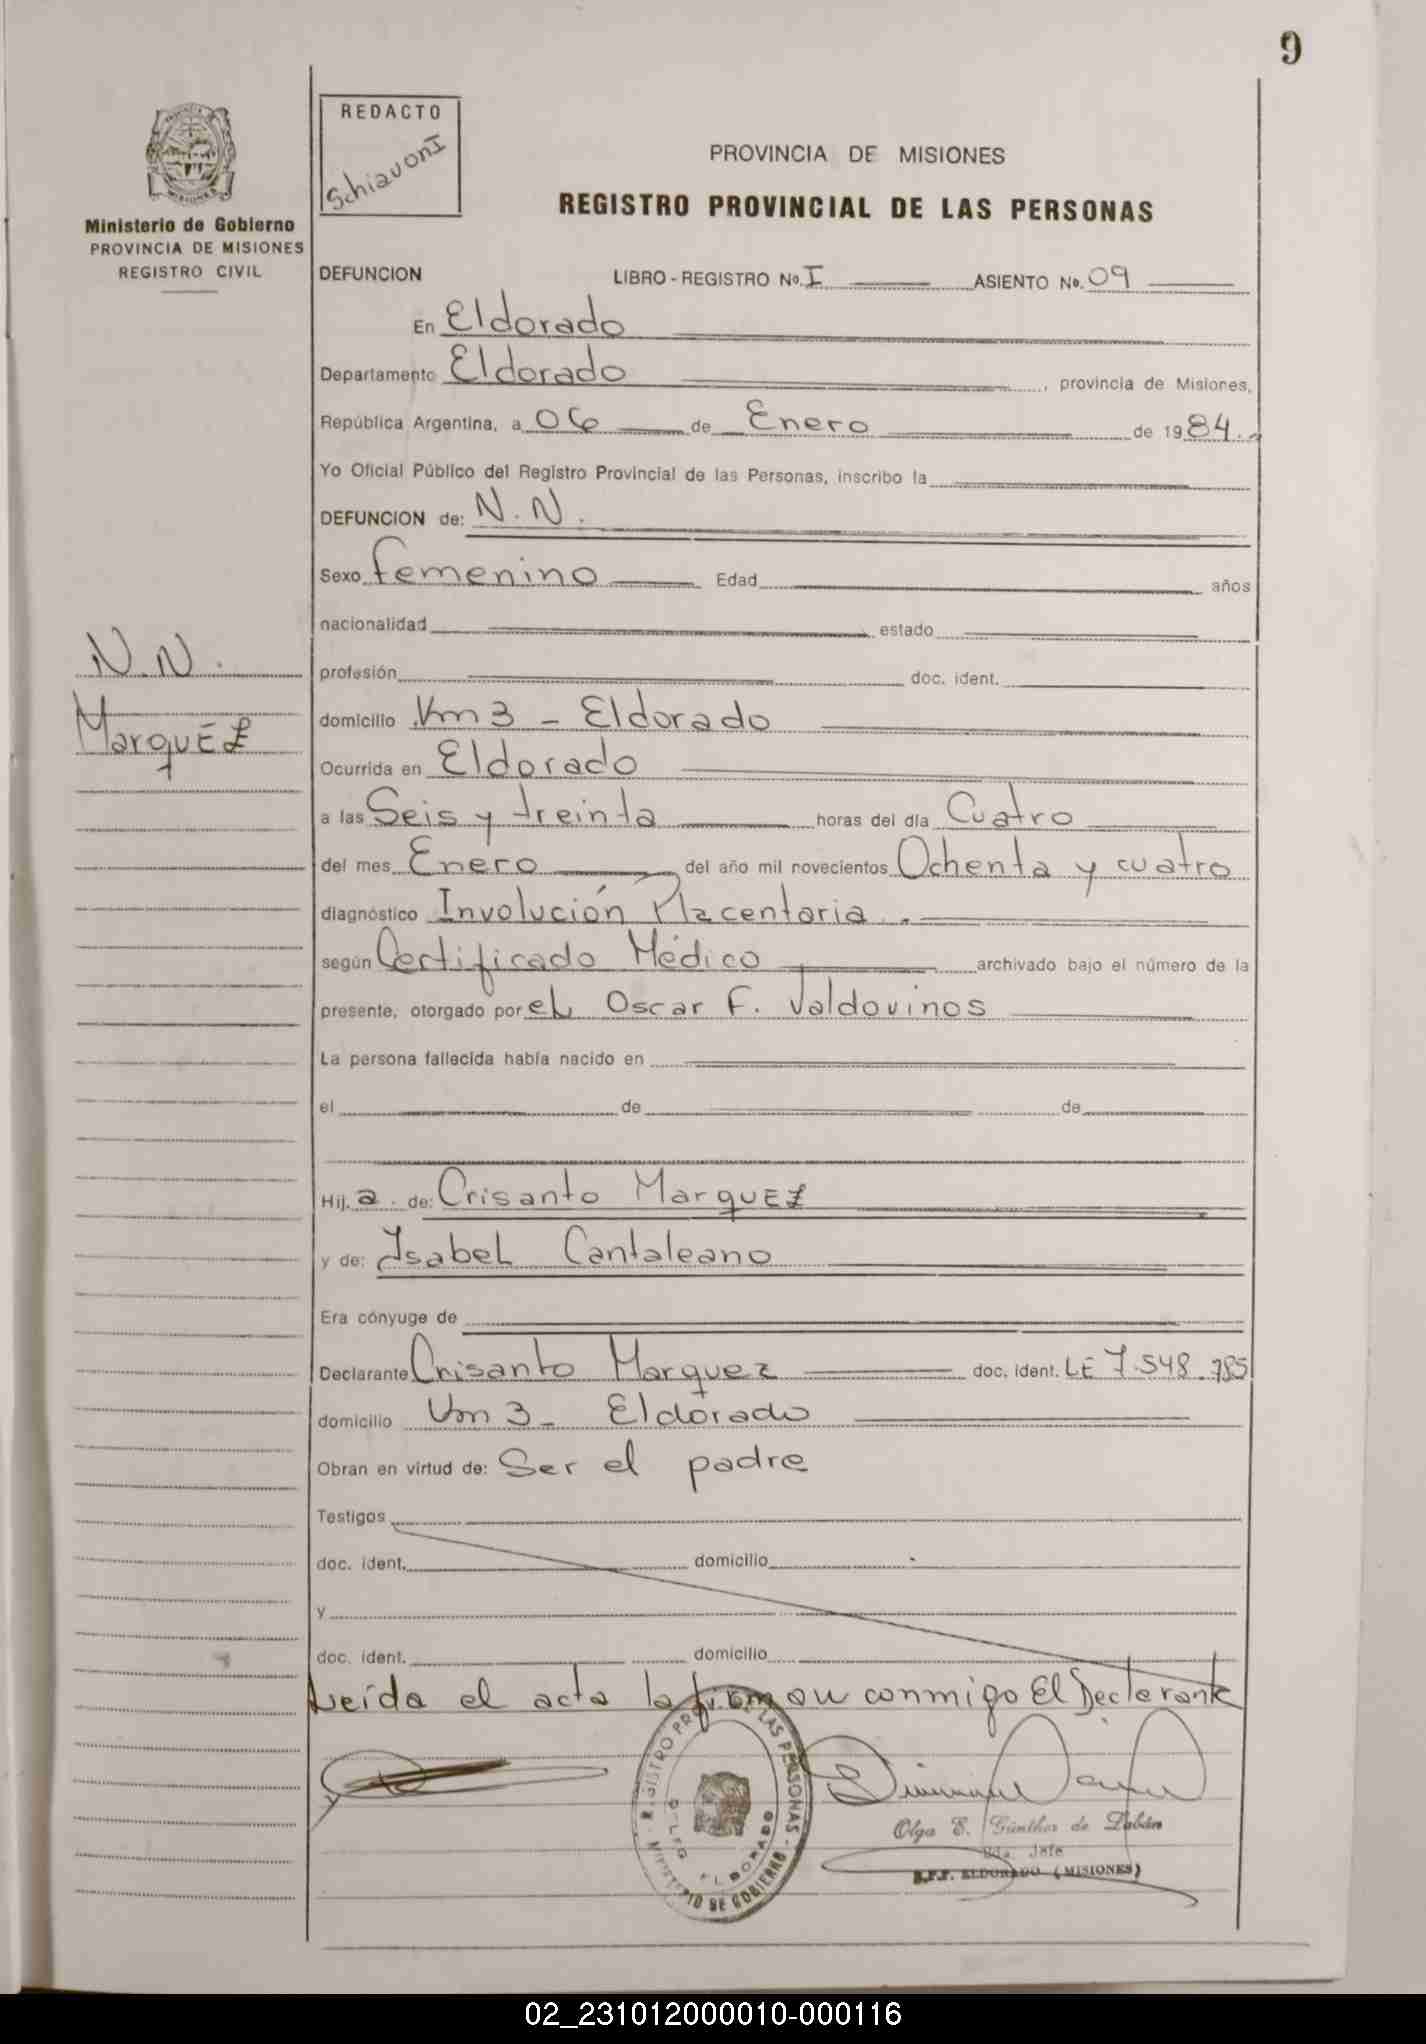 9
REDACTO
Schiavoni
Ministerio de Gobierno
PROVINCIA DE MISIONES
REGISTRO CIVIL
PROVINCIA DE MISIONES
REGISTRO PROVINCIAL DE LAS PERSONAS
DEFUNCION LIBRO - REGISTRO No. I ASIENTO No. 09
En Eldorado
Departamento Eldorado, provincia de Misiones,
República Argentina, a 06 de Enero de 1984.
Yo Oficial Público del Registro Provincial de las Personas, inscribo la
DEFUNCION de: N.N.
Sexo femenino Edad años
nacionalidad estado
profesión doc. ident.
domicilio Km 3 - Eldorado
Ocurrida en Eldorado
a las Seis y treinta horas del día Cuatro
del mes Enero del año mil novecientos Ochenta y cuatro
diagnóstico Involución Placentaria.
según Certificado Médico archivado bajo el número de la
presente, otorgado por el Oscar F. Valdovinos
La persona fallecida había nacido en
el de de
Hij a. de: Crisanto Marquez
y de: Isabel Cantaleano
Era cónyuge de
Declarante Crisanto Marquez doc. ident. LE 7.548.785
domicilio Km 3 - Eldorado
Obran en virtud de: Ser el padre
Testigos
doc. ident. domicilio
y
doc. ident. domicilio
Leída el acta la firman conmigo El Declarante
N.N.
Marquez
REGISTRO PROV. DE LAS PERSONAS - MINISTERIO DE GOBIERNO
ELDORADO
Olga E. Günther de Labán
Jefe
R.P.P. ELDORADO (MISIONES)
02_231012000010-000116